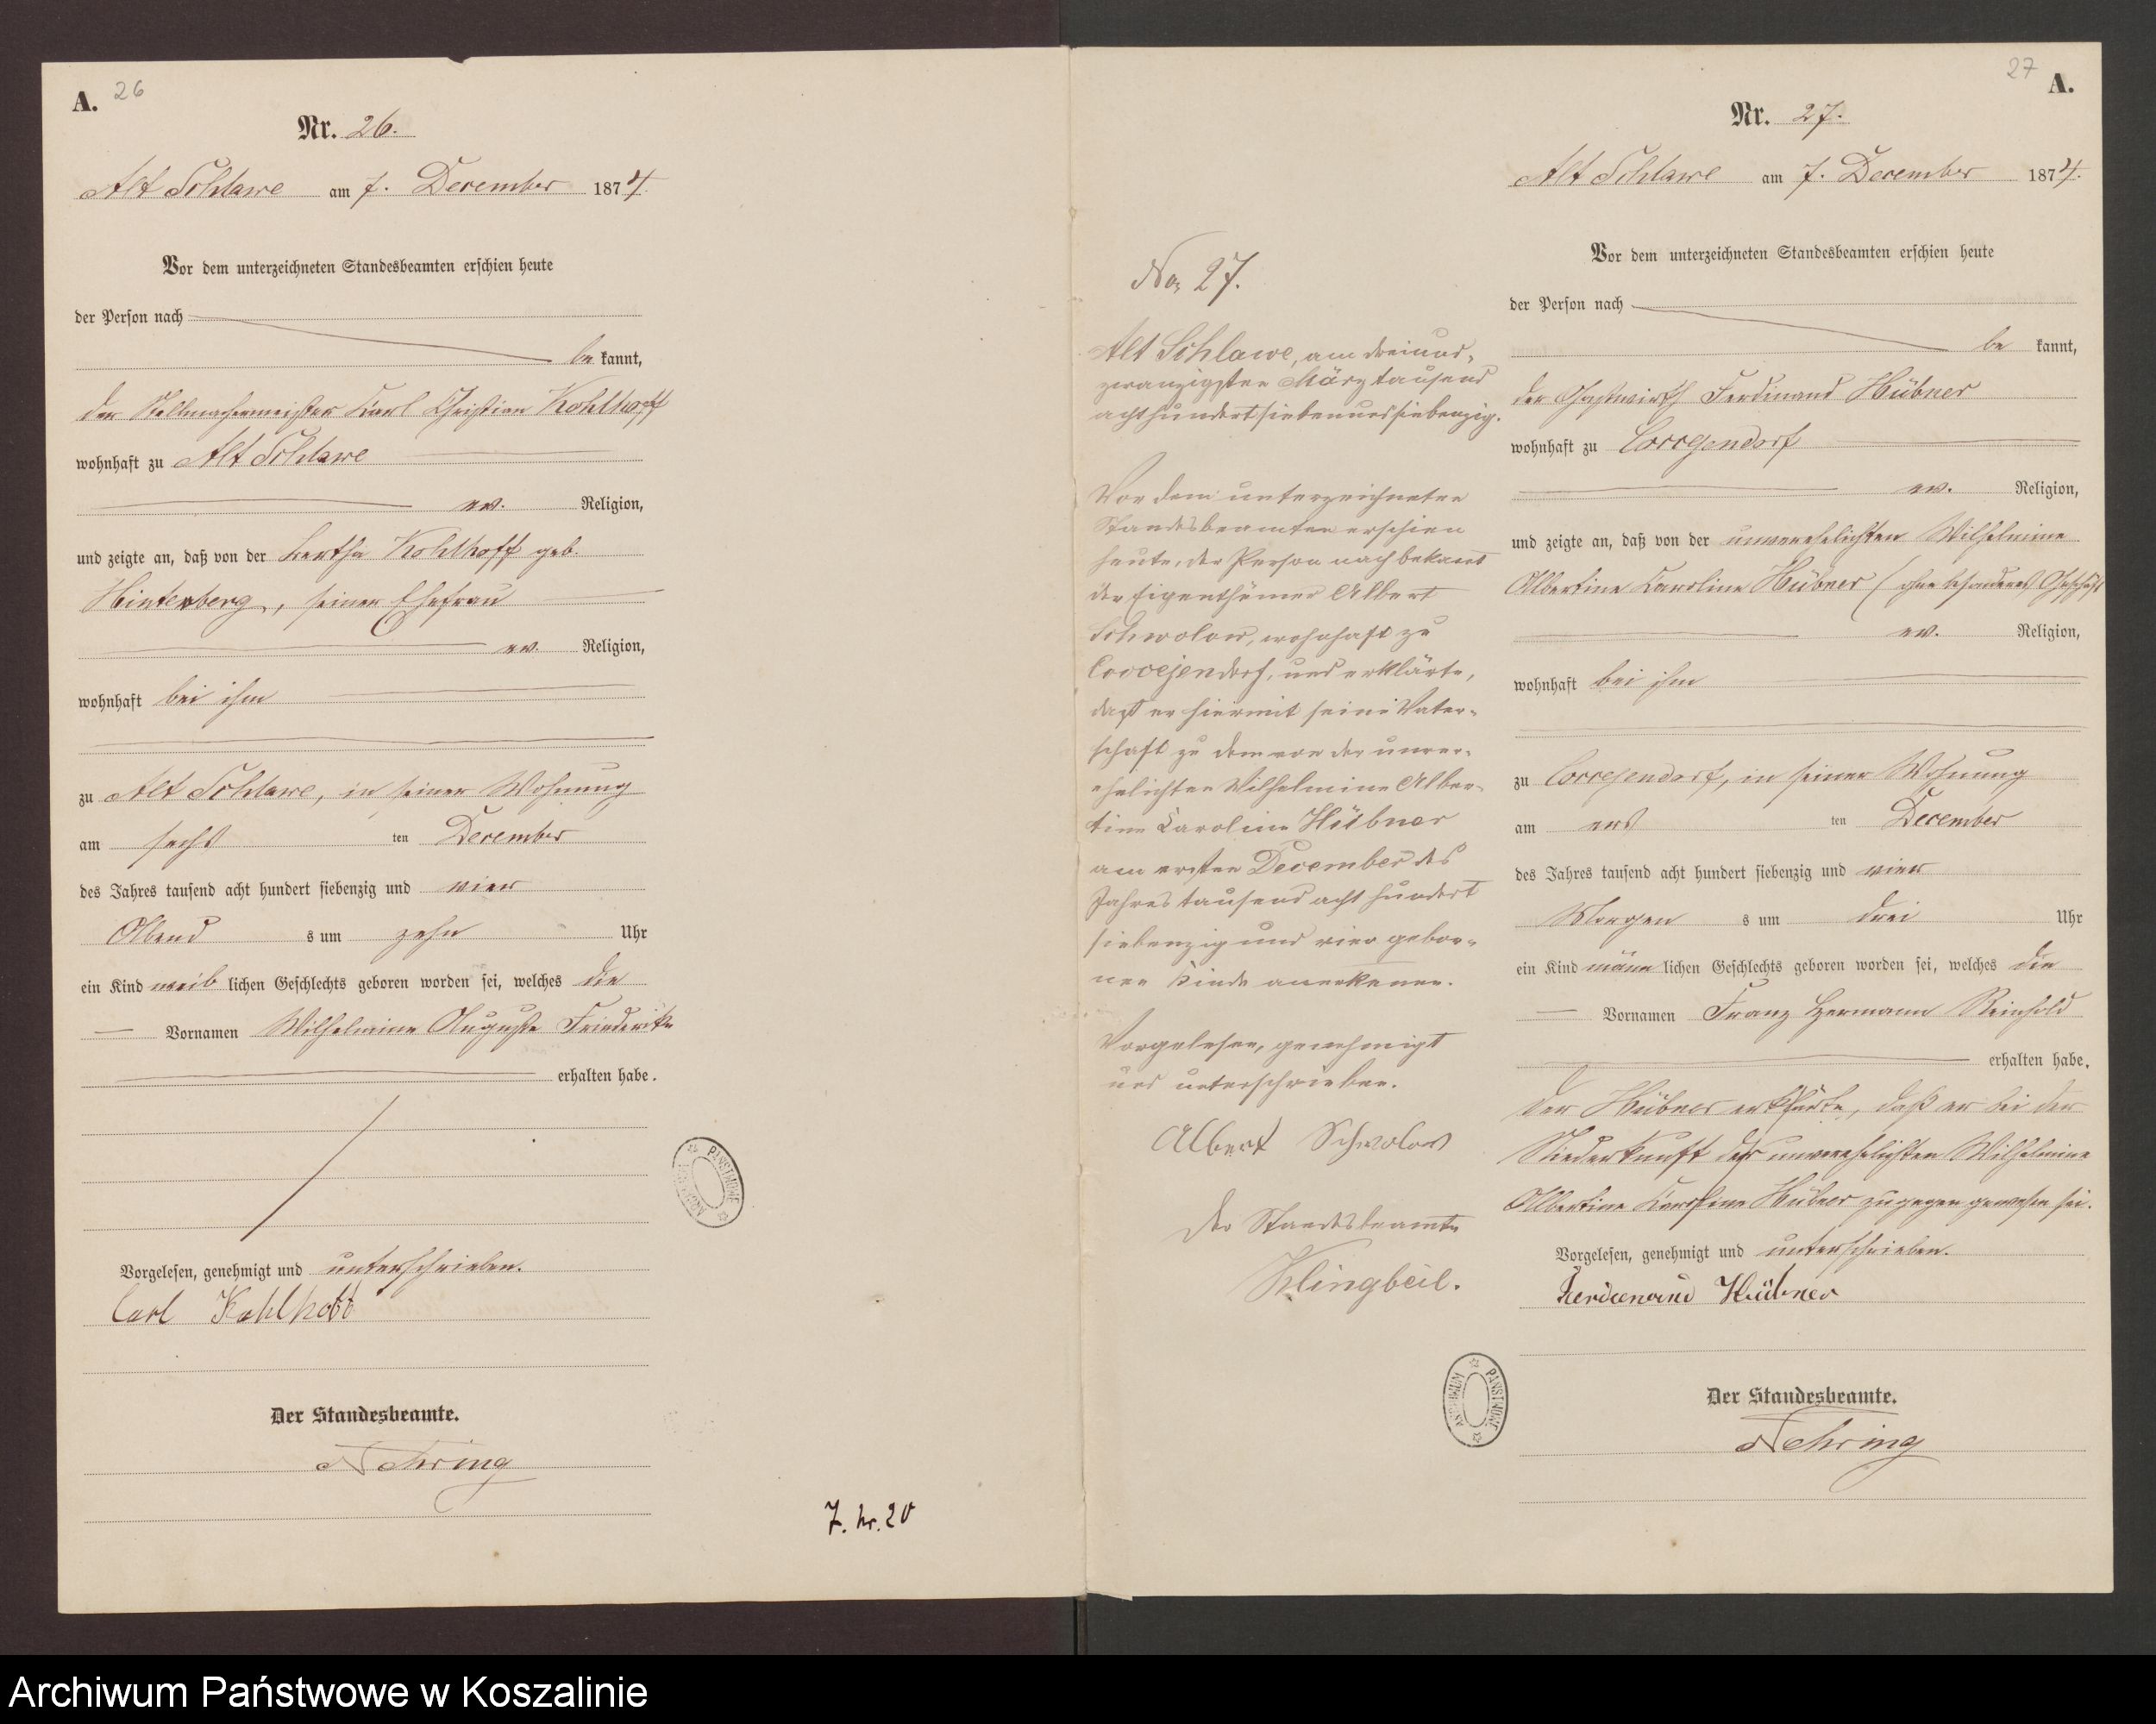 A. 26
Nr. 26.
Alt Schlawe am 7. December 1874.
Vor dem unterzeichneten Standesbeamten erschien heute
der Person nach
be kannt,
der Stellmachermeister Karl Christian Kohlhoff
wohnhaft zu Alt Schlawe
ev. Religion,
und zeigte an, daß von der Bertha Kohlhoff geb.
Hintenberg, seiner Ehefrau
ev. Religion,
wohnhaft bei ihm
zu Alt Schlawe, in seiner Wohnung
am sechs ten December
des Jahres tausend acht hundert siebenzig und vier
Abend s um zehn Uhr
ein Kind weib lichen Geschlechts geboren worden sei, welches die
Vornamen Wilhelmine Auguste Friederike
erhalten habe.
Vorgelesen, genehmigt und unterschrieben.
Carl Kohlhoff
Der Standesbeamte.
Nehring
7. hr. 20
No. 27.
Alt Schlawe, am dreiund-
zwanzigsten März tausend
achthundert siebenundsiebenzig.
Vor dem unterzeichneten
Standesbeamten erschien
heute, der Person nach bekannt
der Eigenthümer Albert
Schwolow, wohnhaft zu
Coccejendorf, und erklärte,
daß er hiermit seine Vater-
schaft zu dem von der unver-
ehelichten Wilhelmine Alber-
tine Karoline Hübner
am ersten December des
Jahres tausend acht hundert
siebenzig und vier gebor-
nen Kinde anerkenne.
Vorgelesen, genehmigt
und unterschrieben.
Albert Schwolow
Der Standesbeamte
Klingbeil.
27 A.
Nr. 27.
Alt Schlawe am 7. December 1874.
Vor dem unterzeichneten Standesbeamten erschien heute
der Person nach
be kannt,
der Gastwirth Ferdinand Hübner
wohnhaft zu Coccejendorf
ev. Religion,
und zeigte an, daß von der unverehelichten Wilhelmine
Albertine Karoline Hübner (ohne besonderes Geschäft
ev. Religion,
wohnhaft bei ihm
zu Coccejendorf, in seiner Wohnung
am ers ten December
des Jahres tausend acht hundert siebenzig und vier
Morgen s um drei Uhr
ein Kind männ lichen Geschlechts geboren worden sei, welches die
Vornamen Franz Hermann Reinhold
erhalten habe.
Der Hübner erklärte, daß er bei der
Niederkunft der unverehelichten Wilhelmine
Albertine Karoline Hübner zugegen gewesen sei.
Vorgelesen, genehmigt und unterschrieben.
Ferdienand Hübner
Der Standesbeamte.
Nehring
ARCHIWUM PAŃSTWOWE
Archiwum Państwowe w Koszalinie